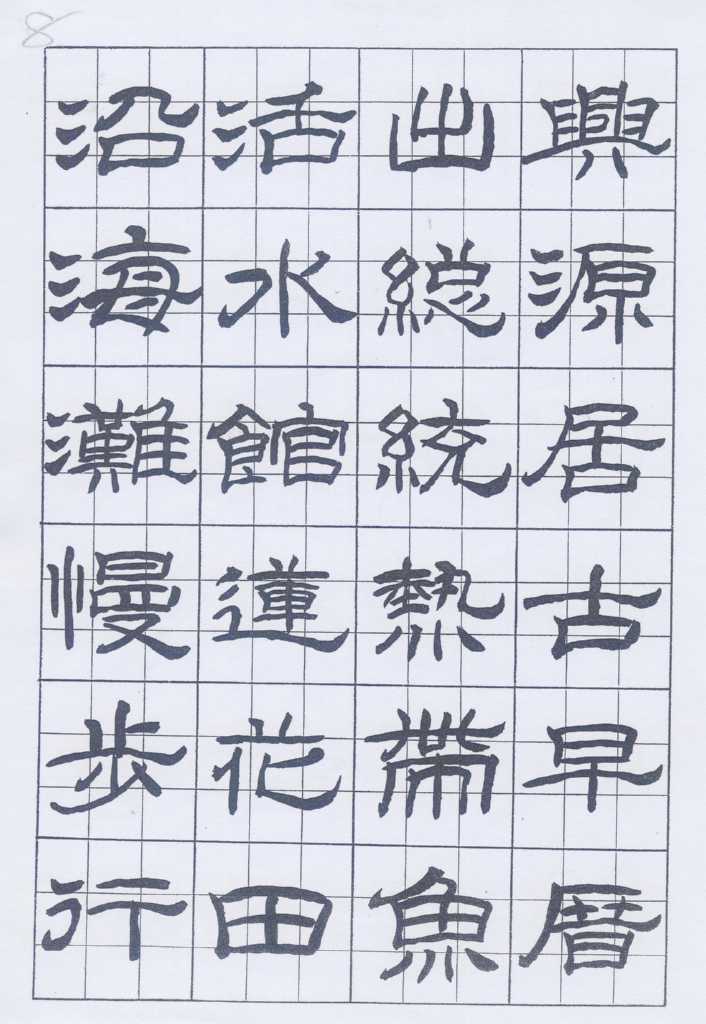 8
興源居古早厝
出總統熱帶魚
活水館蓮花田
沿海灘慢步行